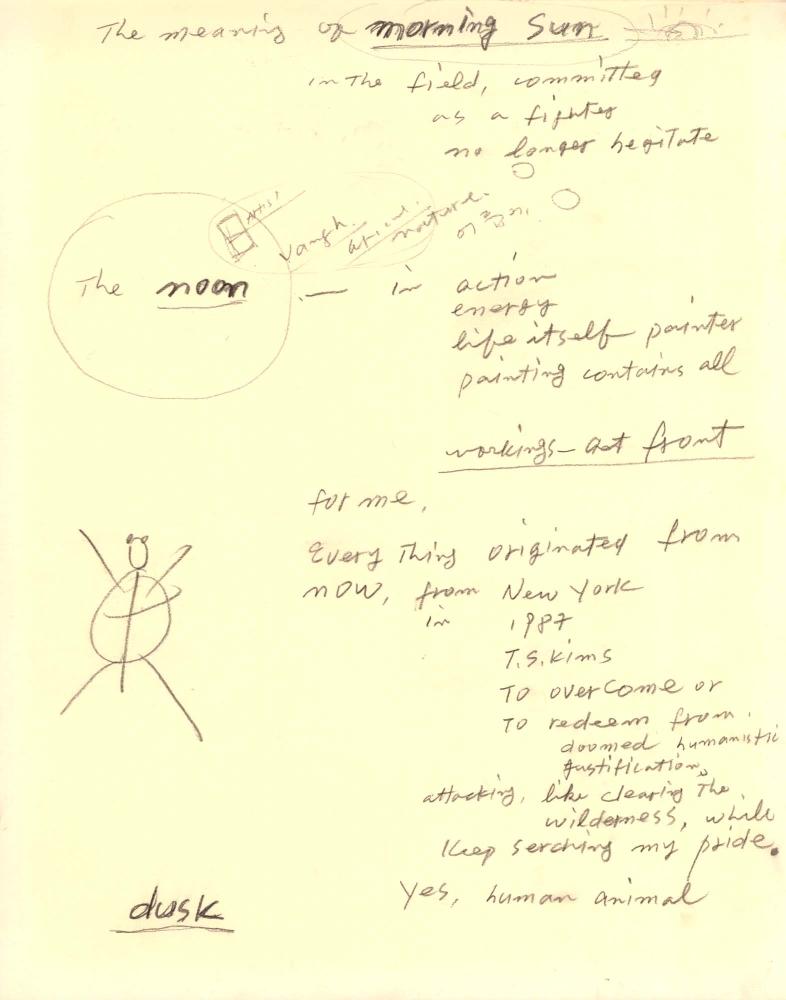 The meaning of morning Sun
in the field, committed
as a fighter
no longer hegitate
Artist
nature.
The noon — in action
energy
life itself painter
painting contains all
workings - act front
for me,
Every Thing originated from
now, from New York
in 1987
T.S.Kims
To overcome or
To redeem from.
doomed humanistic
justification,
attacking, like clearing The
wilderness, while
Keep serching my pride.
dusk
Yes, human animal